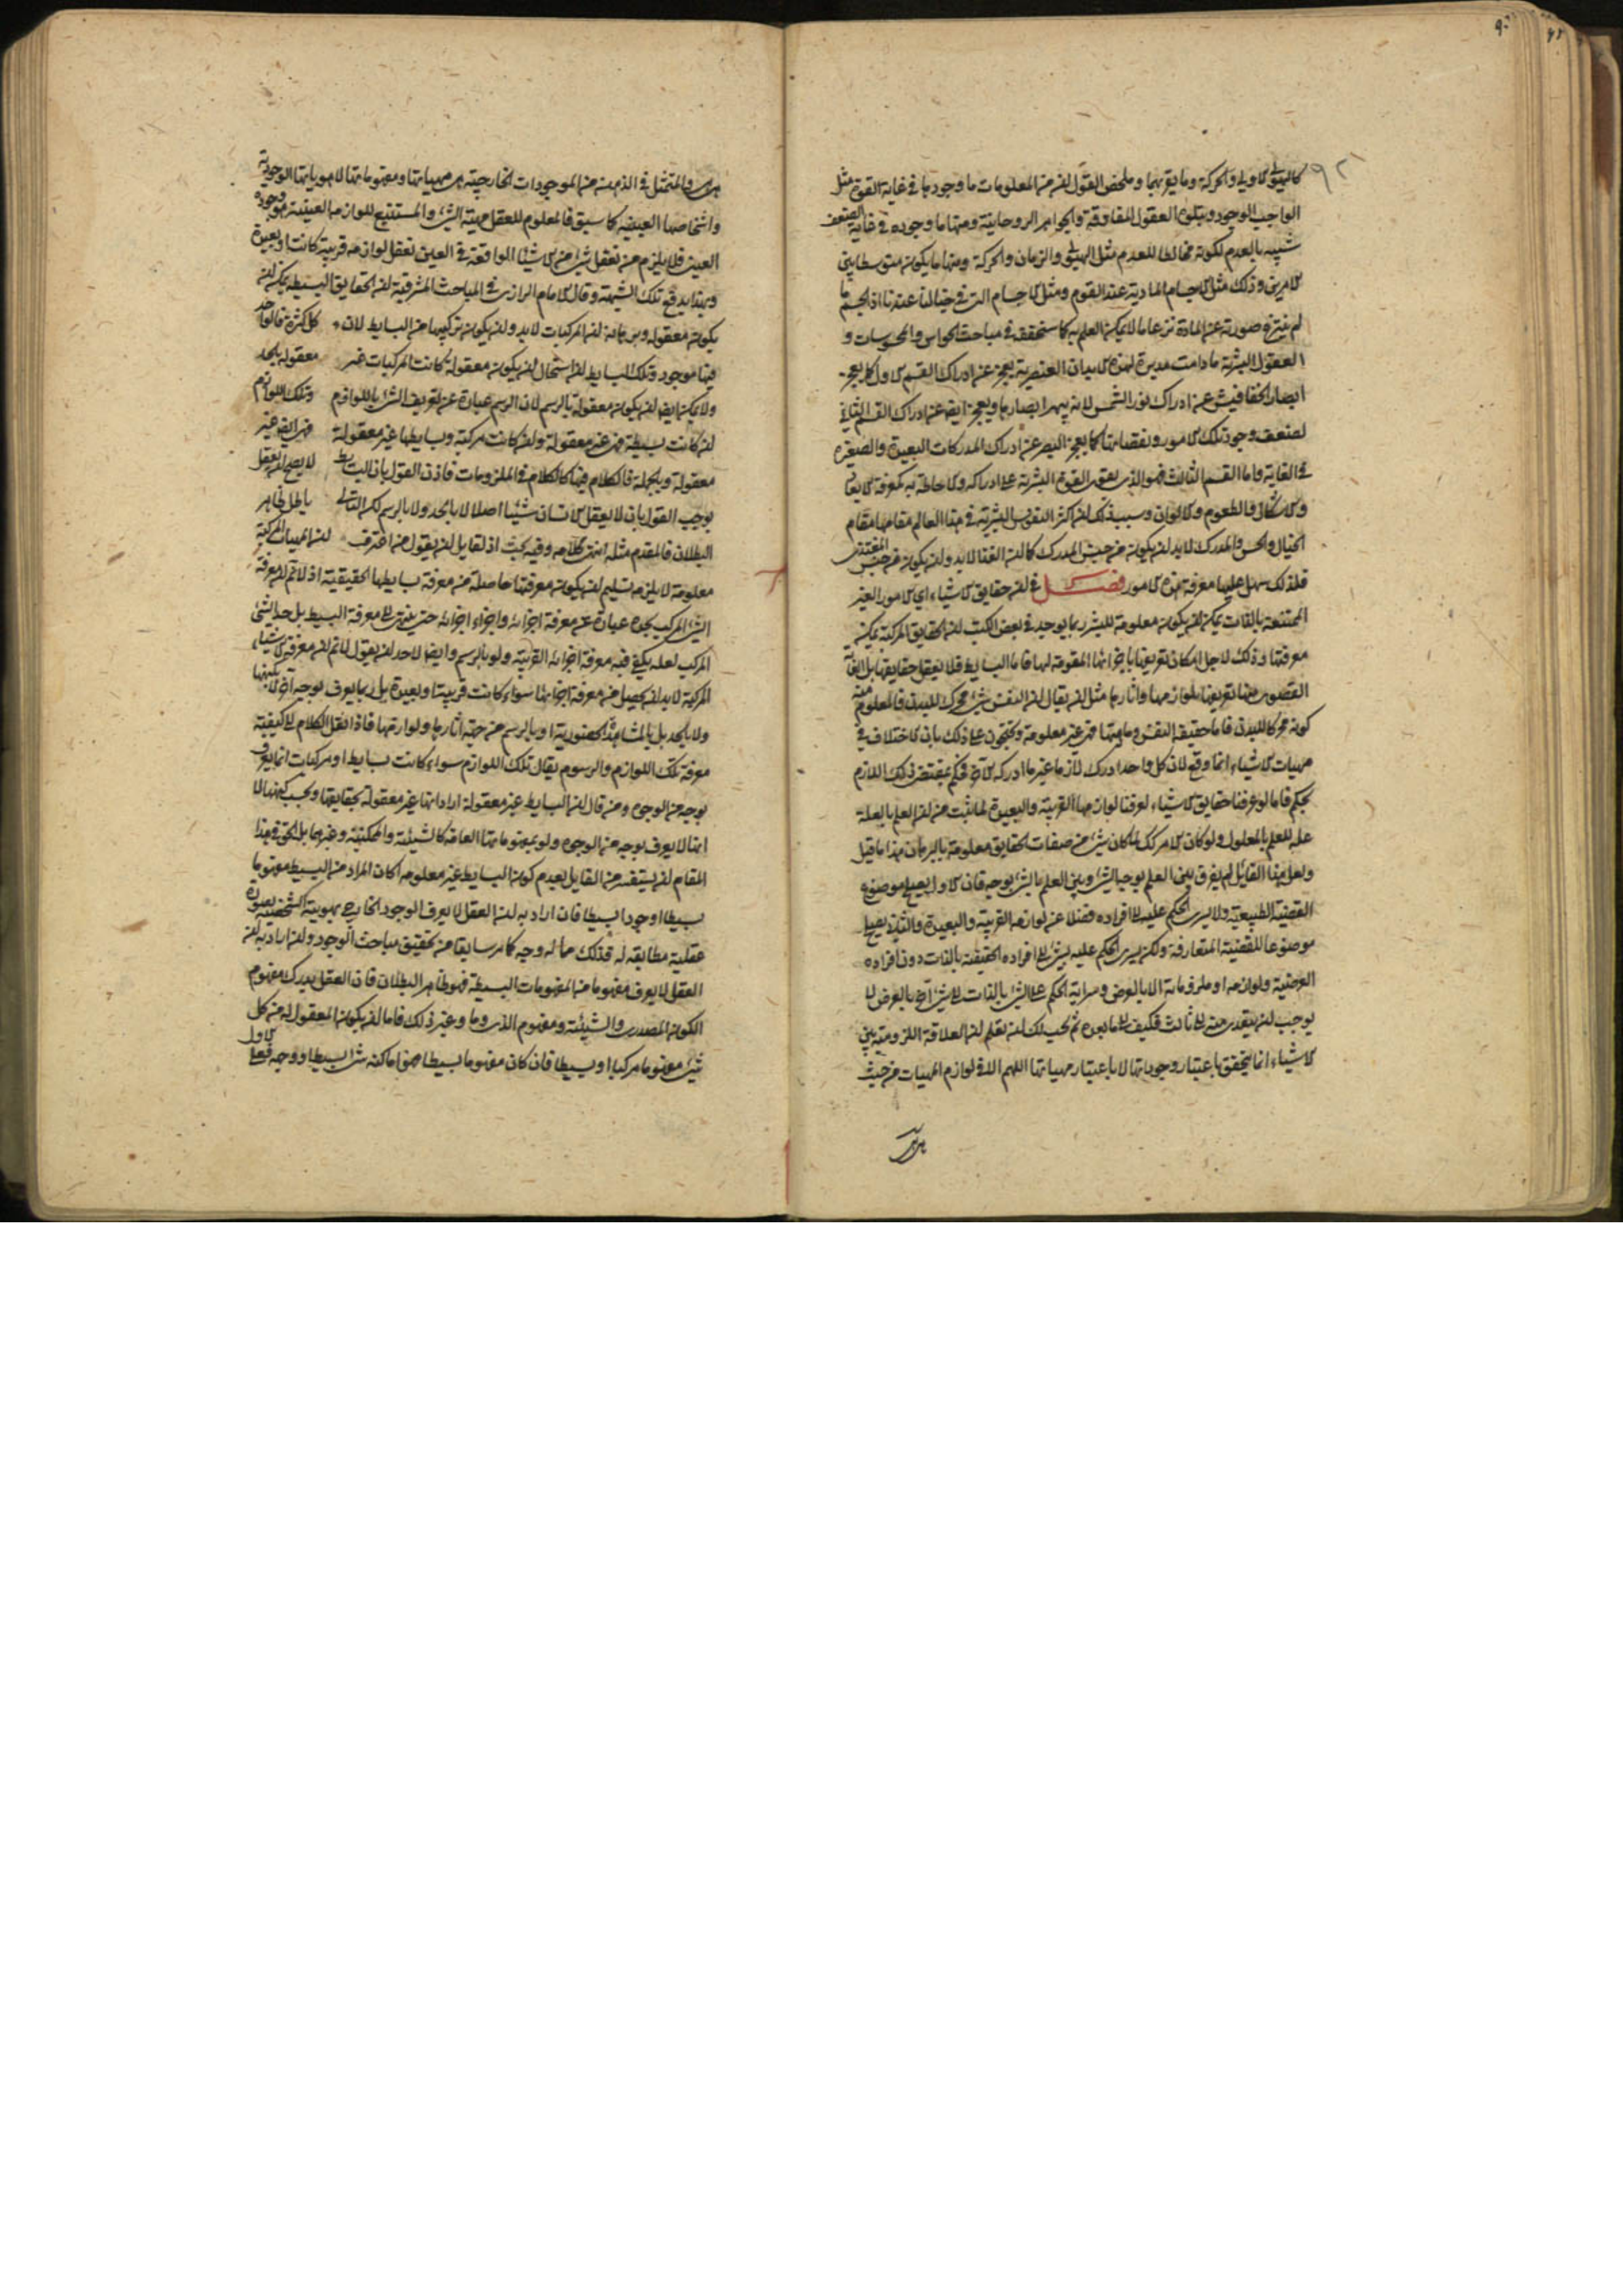 كالهيولى الاولى والحركة وما يقر بهما وملخص القول ان من المعلومات ما وجودها فى غاية القوة مثل
الواجب الوجود ويتلوه العقول المفارقة والجواهر الروحانية ومنها ما وجوده فى غاية الضعف
شبيه بالعدم لكونه مخالطا للعدم مثل الهيولى والزمان والحركة ومنها ما يكون متوسطا بين
الامرين وذلك مثل الاجسام المادية عند القوم ومثل الاجسام التى فى خيالنا عندنا اذ الجسم ما
لم ينتزع صورته عن المادة نزعا ما لا يمكن العلم به كما ستحقق فى مباحث الحواس والمحسوسات و
العقول البشرية ما دامت مدبرة لهذه الابدان العنصرية يعجز عن ادراك القسم الاول كما يعجز
ابصار الخفافيش عن ادراك نور الشمس لانه يبهر ابصارها ويعجز ايضا عن ادراك القسم الثانى
لضعف وجود تلك الامور ونقصانها كما يعجز البصر عن ادراك المدركات البعيدة والصغيرة
فى الغاية واما القسم الثالث فهو الذى يقوى القوة البشرية على ادراكه والاحاطة به كمعرفة الابعاد
والاشكال والطعوم والالوان وسبب ذلك ان اكثر النفوس البشرية فى هذا العالم مقامها مقام
الخيال والحس والمدرك لابد ان يكون من جنس المدرك كما ان الغذا لابد وان يكون من جنس المغتذى
فلذلك سهل عليها معرفة هذه الامور فصل فى ان حقايق الاشياء اى الامور الغير
الممتنعة بالذات يمكن ان يكون معلومة للبشر ربما يوجد فى بعض الكتب ان الحقايق المركبة يمكن
معرفتها وذلك لاجل امكان تعريفها باجزائها المقومة لها فاما البسايط فلا يعقل حقايقها بل الغاية
القصوى منها تعريفها بلوازمها واثارها مثل ان يقال ان النفس شىء محرك للبدن فالمعلوم منه
كونه محركا للبدن فاما حقيقة النفس وماهيتها فهى غير معلومة ويحتجون على ذلك بان الاختلاف فى
مهيات الاشياء انما وقع لان كل واحد ادرك لازما غير ما ادركه الاخر فحكم بمقتضى ذلك اللازم
بحكم فاما لو عرفنا حقايق الاشياء لعرفنا لوازمها القريبة والبعيدة لما ثبت من ان العلم بالعلة
علة للعلم بالمعلول ولو كان الامر كذلك لما كان شىء من صفات الحقايق معلومة بالبرهان هذا ما قيل
ولعل هذا القايل لم يفرق بين العلم بوجه الشىء وبين العلم بالشىء بوجه فان الاول يصح موضوع
القضية الطبيعية ولا يسرى الحكم عليه الى افراده فضلا عن لوازمه القريبة والبعيدة والثانى يصح
موضوعا للقضية المتعارفة ولكن يسرى الحكم عليه بشىء الى افراده الحقيقية بالذات دون افراده
العرضية ولوازمه او ملزوماته الا بالعرض وسراية الحكم على الشىء بالذات الى شىء اخر بالعرض لا
يوجب ان يتعدى منه الى ثالث فكيف الى ما بعده ثم يجب لك ان تعلم ان العلاقة اللزومية بين
الاشياء انما يتحقق باعتبار وجوداتها لا باعتبار مهياتها اللهم الا فى لوازم المهيات من حيث
هى هى
هى هى والمتمثل فى الذهن من الموجودات الخارجية هى مهياتها ومفهوماتها لا هوياتها الوجودية
واشخاصها العينية كما سبق فالمعلوم للعقل مهية الشىء والمستتبع للوازمه العينية هو وجوده
العينى فلا يلزم من تعقل شىء من الاشياء الواقعة فى العين تعقل لوازمه قريبة كانت او بعيدة
وبهذا يدفع تلك الشبهة وقال الامام الرازى فى المباحث المشرقية ان الحقايق البسيطة يمكن ان
يكون معقولة وبرهانه ان المركبات لابد وان يكون تركيبها من البسايط لان كل كثرة فالواحد
فيها موجود وتلك البسايط ان استحال ان يكون معقولة كانت المركبات غير معقولة بالحد
ولا يمكن ايضا ان يكون معقولة بالرسم لان الرسم عبارة عن تعريف الشىء باللوازم وتلك اللوازم
ان كانت بسيطة فهى غير معقولة وان كانت مركبة وبسايطها غير معقولة فهى ايضا غير
معقولة وبالجملة فالكلام فيها كالكلام فى الملزومات فاذن القول بان البسايط لا يصح ان يعقل
يوجب القول بان لا يعقل الانسان شيئا اصلا لا بالحد ولا بالرسم لكن التالى باطل ظاهر
البطلان فالمقدم مثله انتهى كلامه وفيه بحث اذ لقايل ان يقول من اعترف ان المهيات المركبة
معلومة لا يلزمه تسليم ان يكون معرفتها حاصلة من معرفة بسايطها الحقيقية اذ لا نم ان معرفة
الشىء المركب بحده عبارة عن معرفة اجزائه واجزاء اجزائه حتى ينتهى الى معرفة البسيط بل حد الشىء
المركب لعله يكفى فيه معرفة اجزائه القريبة ولو بالرسم وايضا لاحد ان يقول لا نم ان معرفة الاشياء
المركبة لابد ان يحصل من معرفة اجزائها سواء كانت قريبة او بعيدة بل ربما يعرف بوجه اخر لا بكنهها
ولا بالحد بل بالمشاهدة الحضورية او بالرسم من جهة اثارها ولوازمها فاذا نقل الكلام الى كيفية
معرفة تلك اللوازم والرسوم يقال تلك اللوازم سواء كانت بسايط او مركبات انما يعرف
بوجه من الوجوه ومن قال ان البسايط غير معقولة اراد انها غير معقولة بحقايقها وبحسب كنهها لا
انها لا يعرف بوجه من الوجوه ولو بمفهوماتها العامة كالشيئية والممكنية وغيرها بل الحق فى هذا
المقام ان يستفسر من القايل بعدم كون البسايط غير معلومة اكان المراد من البسيط مفهوما
بسيطا او وجودا بسيطا فان اراد به ان العقل لا يعرف الوجود الخارجى بهويته الشخصية بصورة
عقلية مطابقه له فذلك مما له وجه كما مر سابقا من تحقيق مباحث الوجود وان اراد به ان
العقل لا يعرف مفهوما من المفهومات البسيطة فهو ظاهر البطلان فان العقل يدرك مفهوم
الكون المصدرى والشيئية ومفهوم الذى وما وغير ذلك فاما ان يكون المعقول له من كل
شىء مفهوما مركبا او بسيطا فان كان مفهوما بسيطا فهو اما كنه شىء بسيط او وجهه فعلى الاول